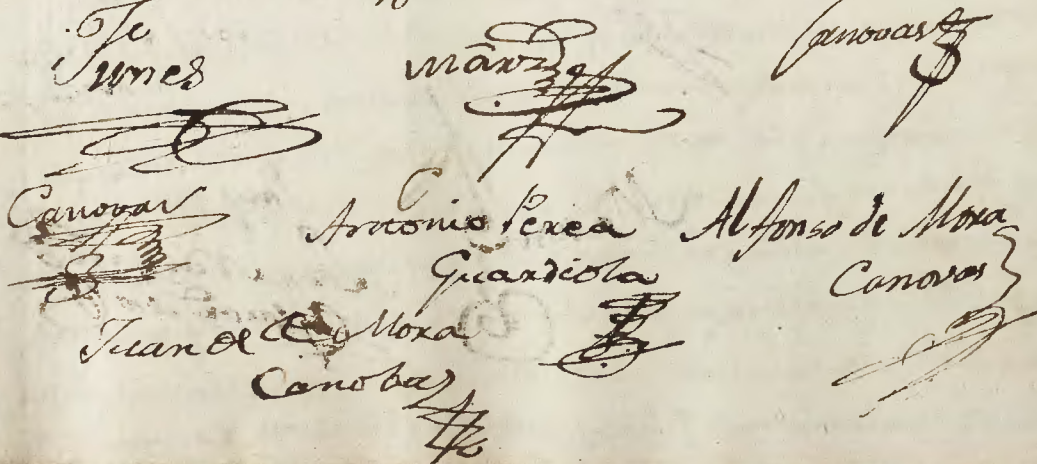 Tunes
Canovas
Canovas
Antonio Perea
Guardiola
Alfonso de Mora
Canovas
Juan de Mora
Canobas